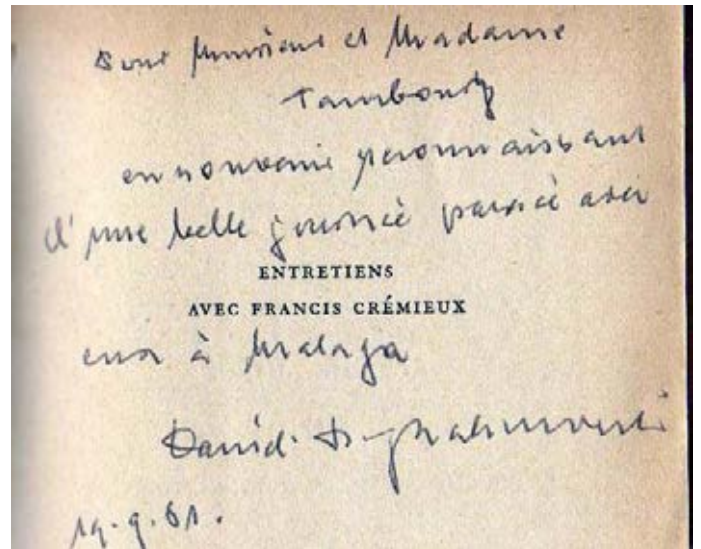 Pour Monsieur et Madame
en souvenir reconnaissant
d'une belle journée passée avec
ENTRETIENS
AVEC FRANCIS CRÉMIEUX
eux à Malaga
19.9.61.